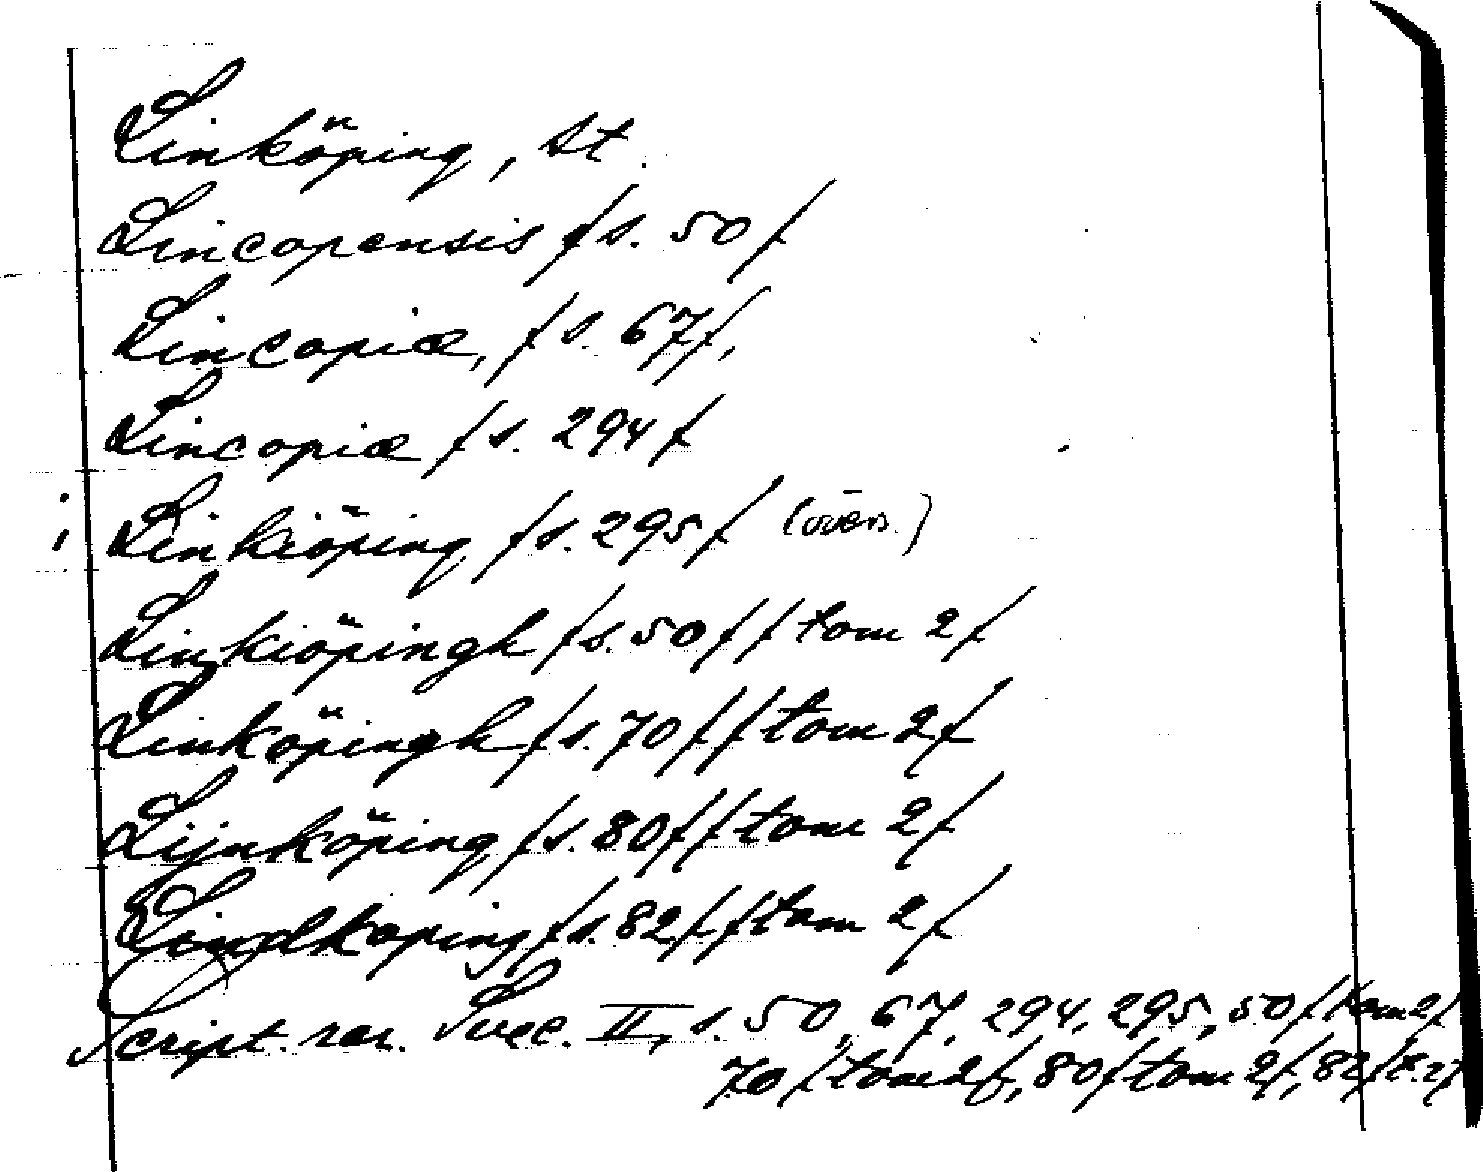 Linköping, st.
Lincopensis / s. 50 /
Lincopiæ, / s. 67 /,
Lincopiæ / s. 294 /
Linkiöping / s. 295 / (övers.)
Linkiöpingh / s. 50 / / tom 2 /
Linköpingh / s. 70 / / tom 2 /
Lijnköping / s. 80 / / tom 2 /
Lindköping / s. 82 / / tom 2 /
Script. rer. Svec. II, s. 50, 67, 294, 295, 50 / tom 2 /
70 / tom 2 /, 80 / tom 2 /, 82 / t. 2 /